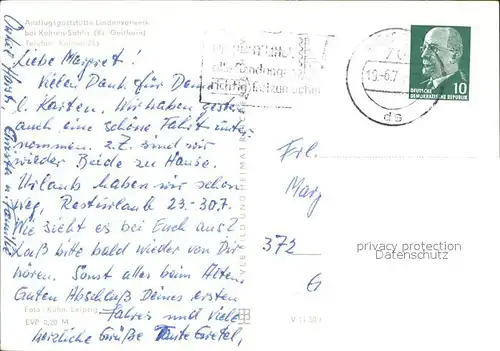 Ausflugsgaststätte Lindenvorwerk
bei Kohren-Sahlis (Kr. Geithain)
Telefon: Kohren
Liebe Margret!
Vielen Dank für Deine
l. Karten. Wir haben gestern
auch eine schöne Fahrt unter-
nommen. z.Z. sind wir
wieder Beide zu Hause.
Urlaub haben wir schon
weg, Resturlaub 23.-30.7.
Wie sieht es bei Euch aus?
Laß bitte bald wieder von Dir
hören. Sonst alles beim Alten.
Guten Abschluß Deines ersten
Jahres und viele
herzliche Grüße Tante Gretel,
Onkel Horst, Christa u. Familie
Foto: Kühn, Leipzig
EVP 0,20 M
BILD UND HEIMAT
V 11 50
10.-6.7
DEUTSCHE
DEMOKRATISCHE REPUBLIK
10
Frl.
Marg
372
G
privacy protection
Datenschutz